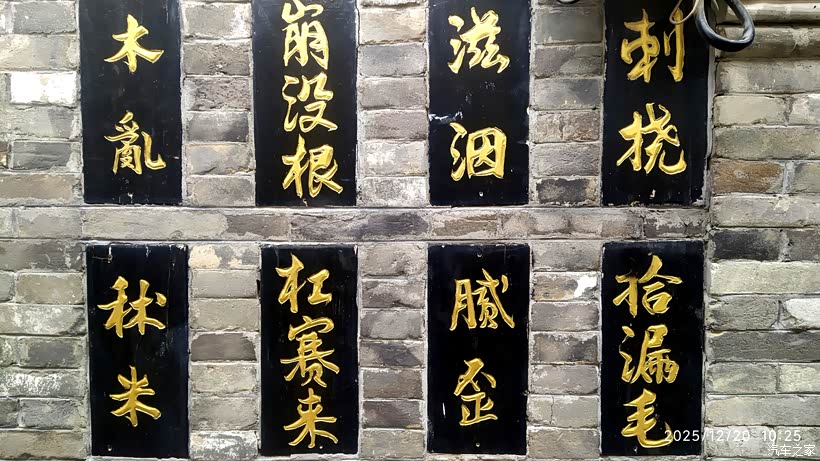 木亂
崩没根
滋泅
刺挠
秫米
杠赛来
腻歪
拾漏毛
2025/12/20 10:25
汽车之家